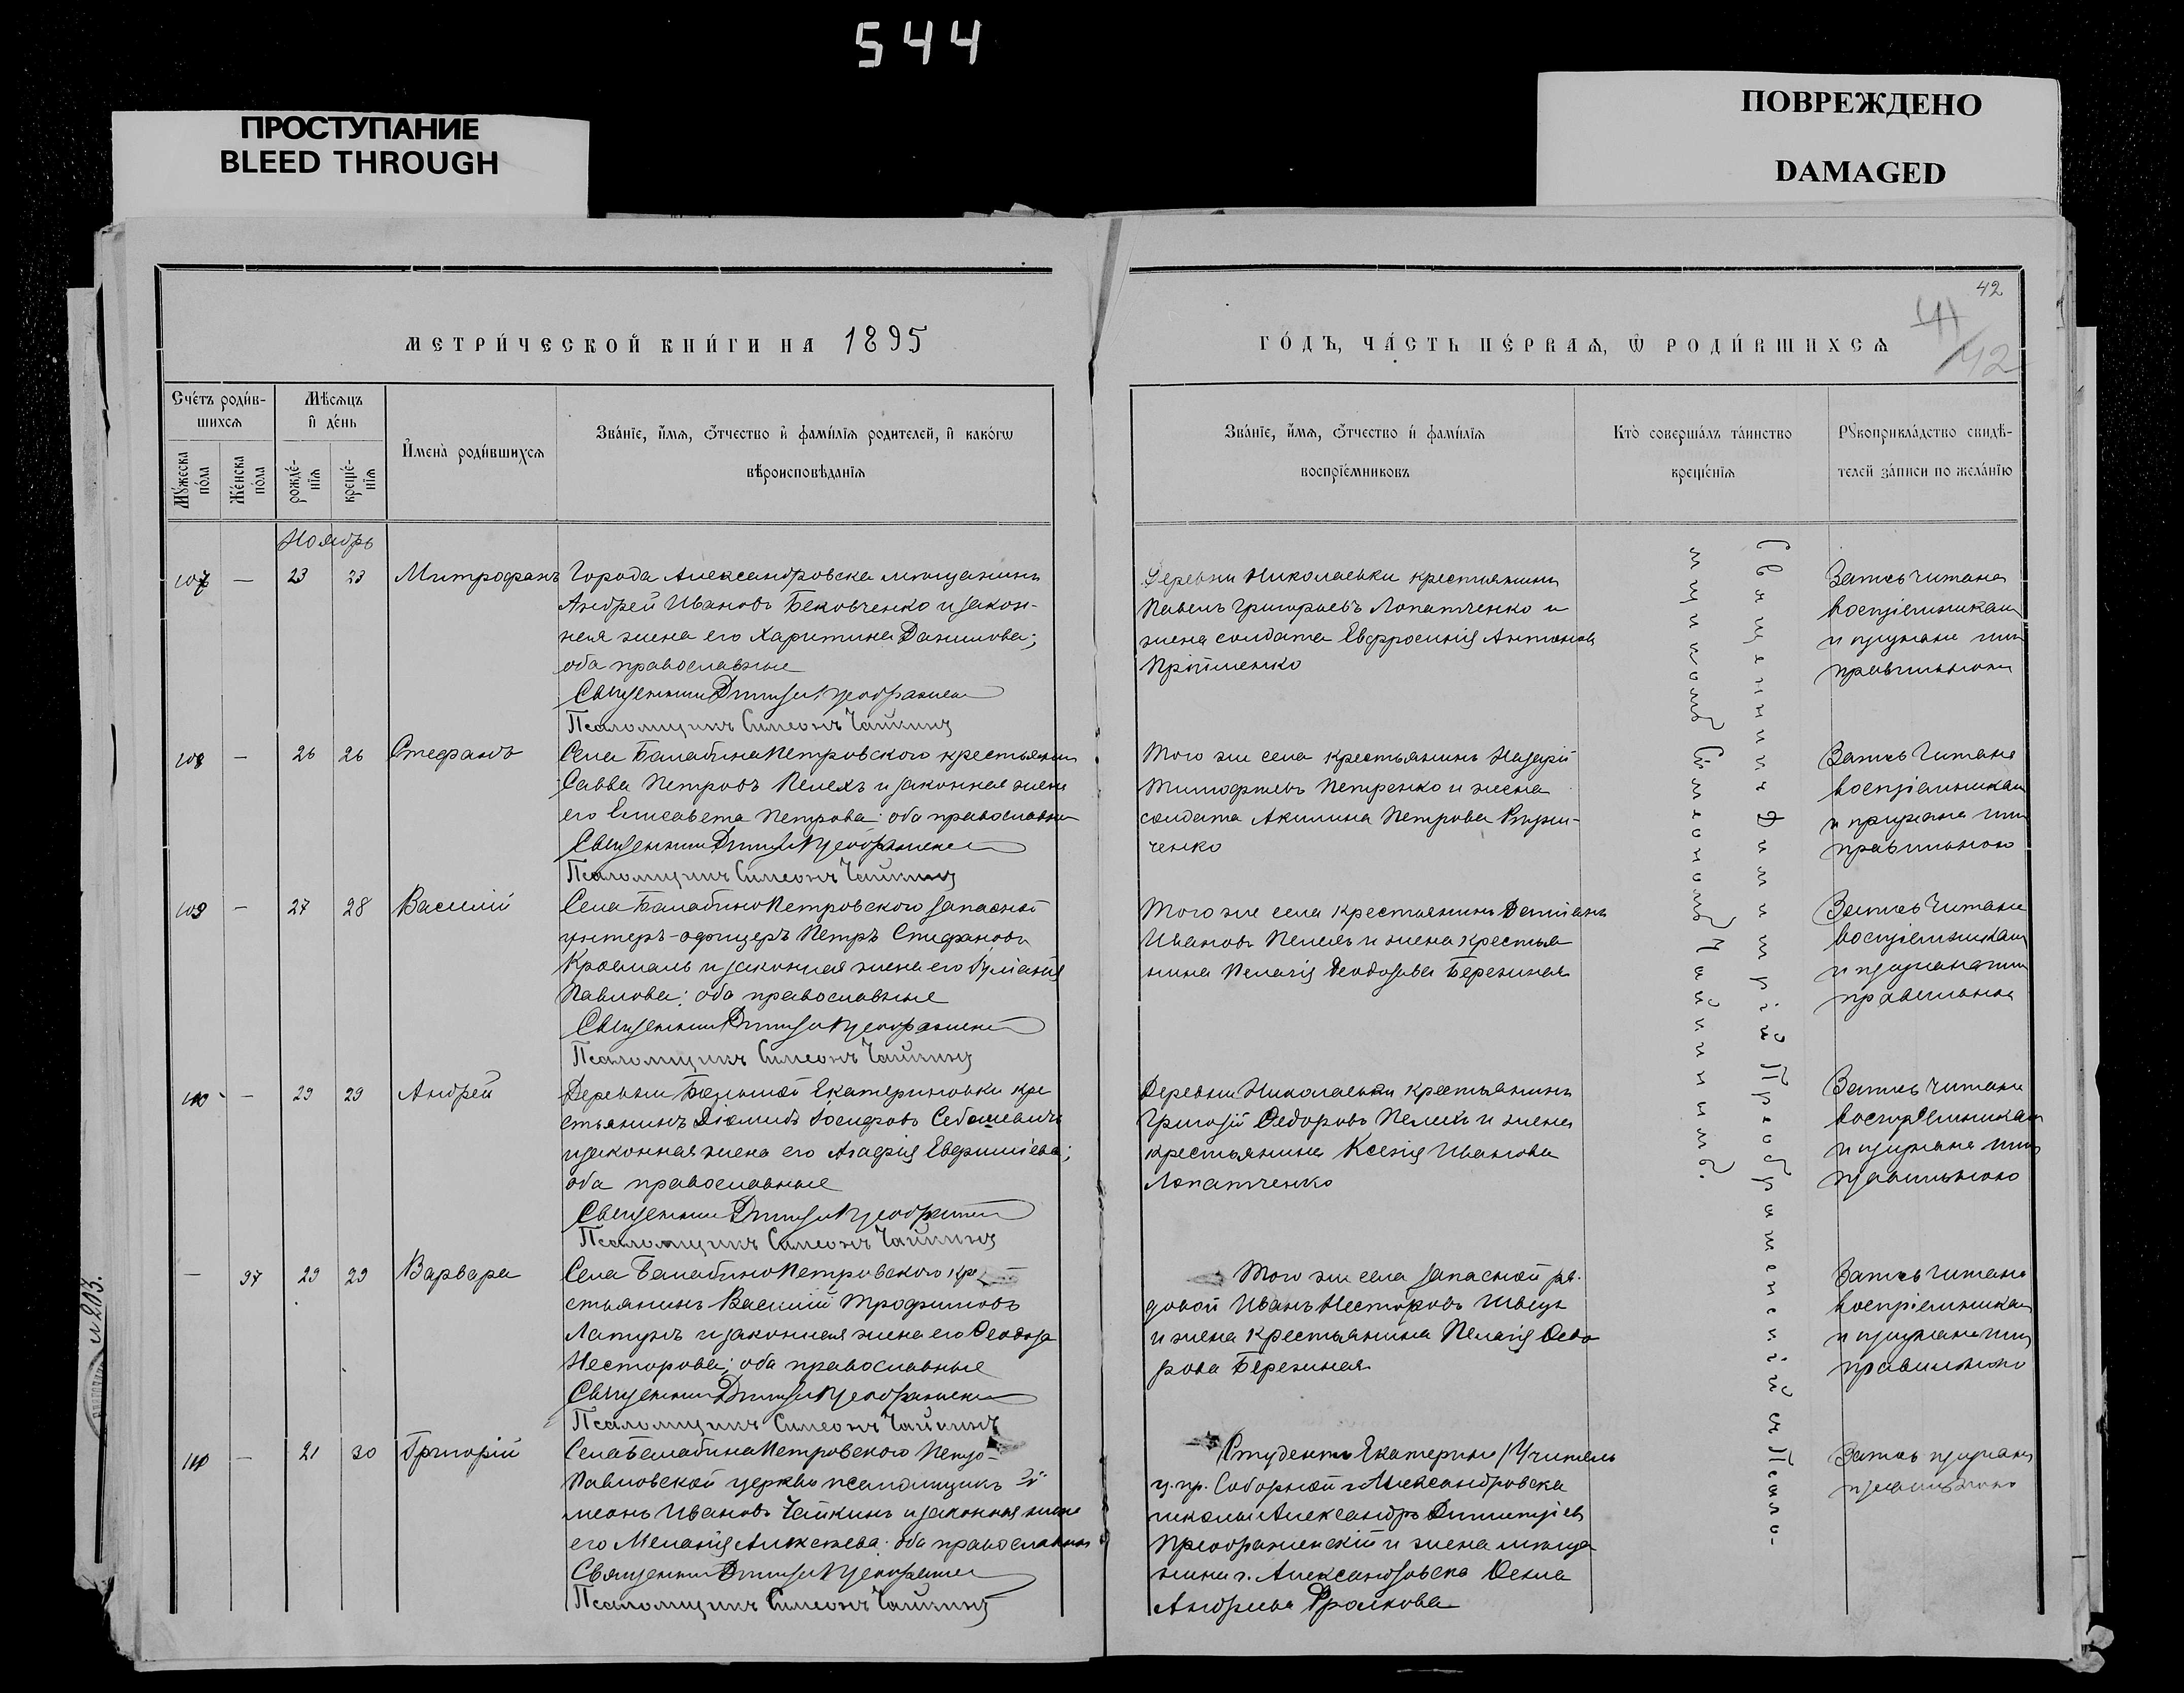 544
ПРОСТУПАНИЕ
BLEED THROUGH
ПОВРЕЖДЕНО
DAMAGED
42
41
42
МЕТРИ́ЧЕСКОЙ КНИ́ГИ НА 1895
ГО́ДЪ, ЧА́СТЬ ПЕ́РВАѦ, Ѿ РОДИ́ВШИХСѦ
Сче́тъ роди́в-
шихсѧ
Мѣ́сѧцъ
и҆ де́нь
Му́жеска
по́ла
Же́нска
по́ла
рожде́-
нїѧ
креще́-
нїѧ
И҆мена̀ роди́вшихсѧ
Зва́нїе, и҆́мѧ, ѻ҆́тчество и҆ фамѝлїѧ родителей, и҆ како́гѡ
вѣроисповѣ́данїѧ
Зва́нїе, и҆́мѧ, ѻ҆́тчество и҆ фамѝлїѧ
воспрїе́мниковъ
Кто̀ соверша́лъ та́инство
креще́нїѧ
Рꙋкоприкла́дство свидѣ́-
телей за́писи по жела́нїю
Ноябрь
107 — 23 23 Митрофанъ
Города Александровска мѣщанинъ
Андрей Ивановъ Бековченко и закон-
ная жена его Харитина Данилова;
оба православные
Священникъ Димитрій Преображенскій
Псаломщикъ Симеонъ Чайкинъ
Деревни Николаевки крестьянинъ
Павелъ Григорьевъ Лопатченко и
жена солдата Евфросинія Антонова
Запись читана
воспріемникам
и признана ими
правильною
108 — 26 26 Стефанъ
Села Балабина Петровскаго крестьянинъ
Савва Петровъ Пелехъ и законная жена
его Елисавета Петрова; оба православные
Священникъ Димитрій Преображенскій
Псаломщикъ Симеонъ Чайкинъ
Того же села крестьянинъ Назарій
Тимофѣевъ Петренко и жена
солдата Акилина Петрова
ченко
Запись читана
воспріемникам
и признана ими
правильною
109 — 27 28 Василій
Села Балабино Петровского запасной
унтеръ-офицеръ Петръ Стефановъ
и законная жена его Іуліанія
Павлова; оба православные
Священникъ Димитрій Преображенскій
Псаломщикъ Симеонъ Чайкинъ
Того же села крестьянинъ Даміанъ
Ивановъ Пелехъ и жена крестья
нина Пелагія Ѳеодорова Березиная
Запись читана
воспріемникам
и признана ими
правильною
110 — 29 29 Андрей
Деревни Большой Екатериновки кре
стьянинъ Діомидъ Іосифовъ Себашевичъ
и законная жена его Агафія Евфиміева;
оба православные
Священникъ Димитрій Преображенскій
Псаломщикъ Симеонъ Чайкинъ
Деревни Николаевки крестьянинъ
Григорій Ѳедоровъ Пелехъ и жена
крестьянина Ксенія Иванова
Лопатченко
Запись читана
воспріемникам
и признана ими
правильною
— 97 29 29 Варвара
Села Балабино Петровского кре
стьянинъ Василій Трофимовъ
Лапунъ и законная жена его Ѳеодора
Несторова; оба православные
Священникъ Димитрій Преображенскій
Псаломщикъ Симеонъ Чайкинъ
Того же села запасной ря-
довой Иванъ Несторовъ Швецъ
и жена крестьянина Пелагія Ѳедо
рова Березиная
Запись читана
воспріемникам
и признана ими
правильною
111 — 21 30 Григорій
Села Балабина Петровского Петро-
Павловской церкви псаломщикъ Си-
меонъ Ивановъ Чайкинъ и законная жена
его Меланія Алексѣева; оба православные
Священникъ Димитрій Преображенскій
Псаломщикъ Симеонъ Чайкинъ
Студентъ Екатерин. Учитель
ц. пр. Соборной г. Александровска
школы Александръ Димитріев
Преображенскій и жена мѣща
нина г. Александровска
Андреева Фролкова
Запись признана
правильною
Священникъ Димитрій Преображенскій съ Псало-
мщикомъ Симеономъ Чайкинымъ.